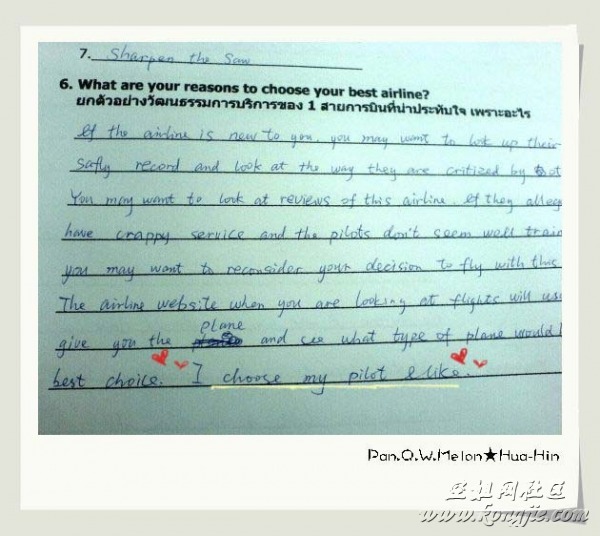 7. Sharpen the Saw
6. What are your reasons to choose your best airline?
ยกตัวอย่างวัฒนธรรมการบริการของ 1 สายการบินที่น่าประทับใจ เพราะอะไร
If the airline is new to you, you may want to look up their
safty record and look at the way they are critized by
You may want to look at reviews of this airline. If they alleg
have crappy service and the pilots don't seem well train
you may want to reconsider your decision to fly with this
The airline website when you are looking at flights will usu
plane
give you the and see what type of plane would
best choice. I choose my pilot & like.
Dan.O.W.Melon★Hua-Hin
空姐网社区
www.kongjie.com